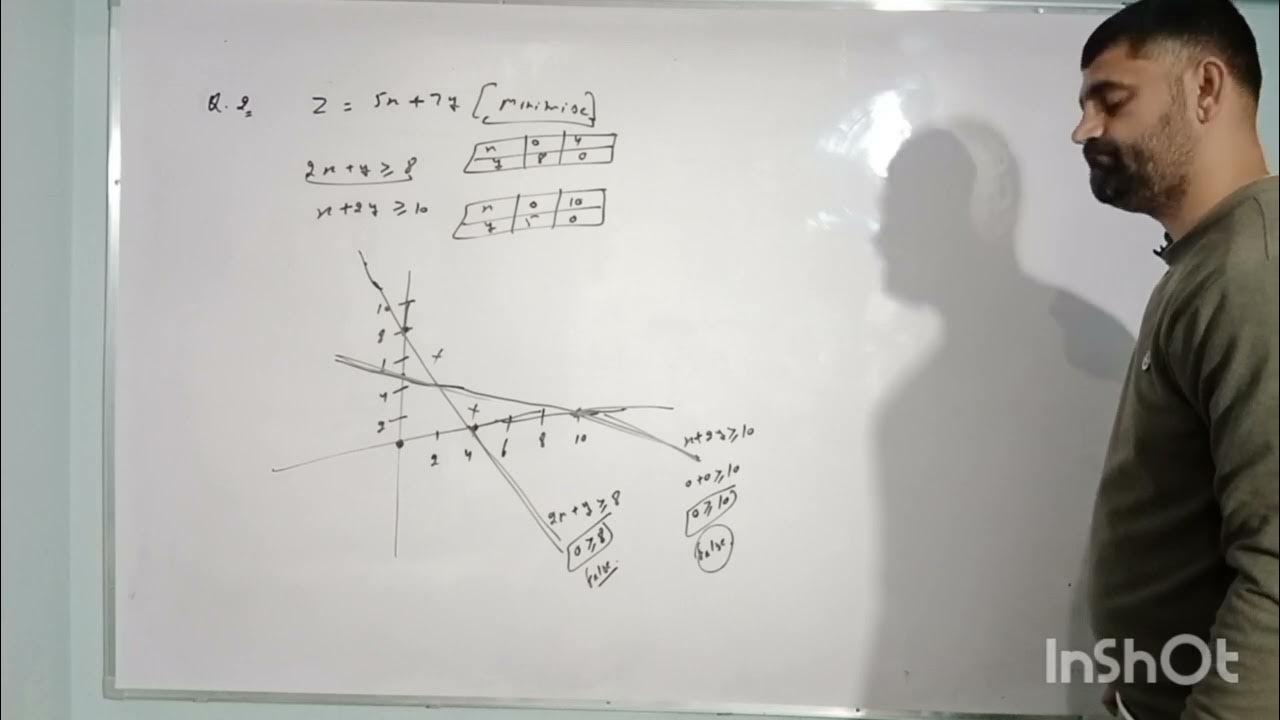 Q. 2, Z = 5x + 7y [Minimise]
2x + y ≥ 8
x 0 4
y 8 0
x + 2y ≥ 10
x 0 10
y 5 0
10
8
6
4
2
2 4 6 8 10
x + 2y ≥ 10
0 + 0 ≥ 10
0 ≥ 10
false
2x + y ≥ 8
0 ≥ 8
false
InShOt